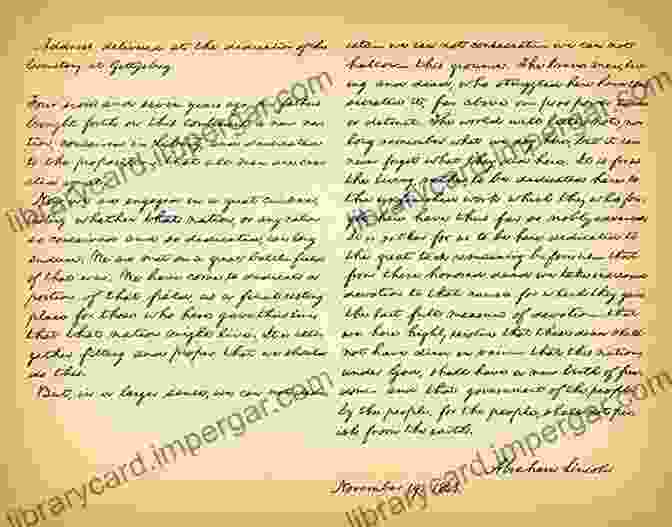 Address delivered at the dedication of the
Cemetery at Gettysburg.
Four score and seven years ago our fathers
brought forth on this continent, a new na-
tion, conceived in Liberty, and dedicated
to the proposition that all men are cre-
ated equal.
Now we are engaged in a great civil war,
testing whether that nation, or any nation
so conceived and so dedicated, can long
endure. We are met on a great battle field
of that war. We have come to dedicate a
portion of that field, as a final resting
place for those who here gave their lives
that that nation might live. It is alto-
gether fitting and proper that we should
do this.
But, in a larger sense, we can not dedi-
cate— we can not consecrate— we can not
hallow— this ground. The brave men, liv-
ing and dead, who struggled here have con-
secrated it, far above our poor power to add
or detract. The world will little note, nor
long remember what we say here, but it can
never forget what they did here. It is for us
the living, rather, to be dedicated here to
the unfinished work which they who fou-
ght here have thus far so nobly advanced.
It is rather for us to be here dedicated to
the great task remaining before us— that
from these honored dead we take increased
devotion to that cause for which they gave
the last full measure of devotion— that
we here highly resolve that these dead shall
not have died in vain— that this nation,
under God, shall have a new birth of free-
dom— and that government of the people,
by the people, for the people, shall not per-
ish from the earth.
Abraham Lincoln.
November 19, 1863.
librarycard.impergar.com
librarycard.impergar.com
librarycard.impergar.com
librarycard.impergar.com